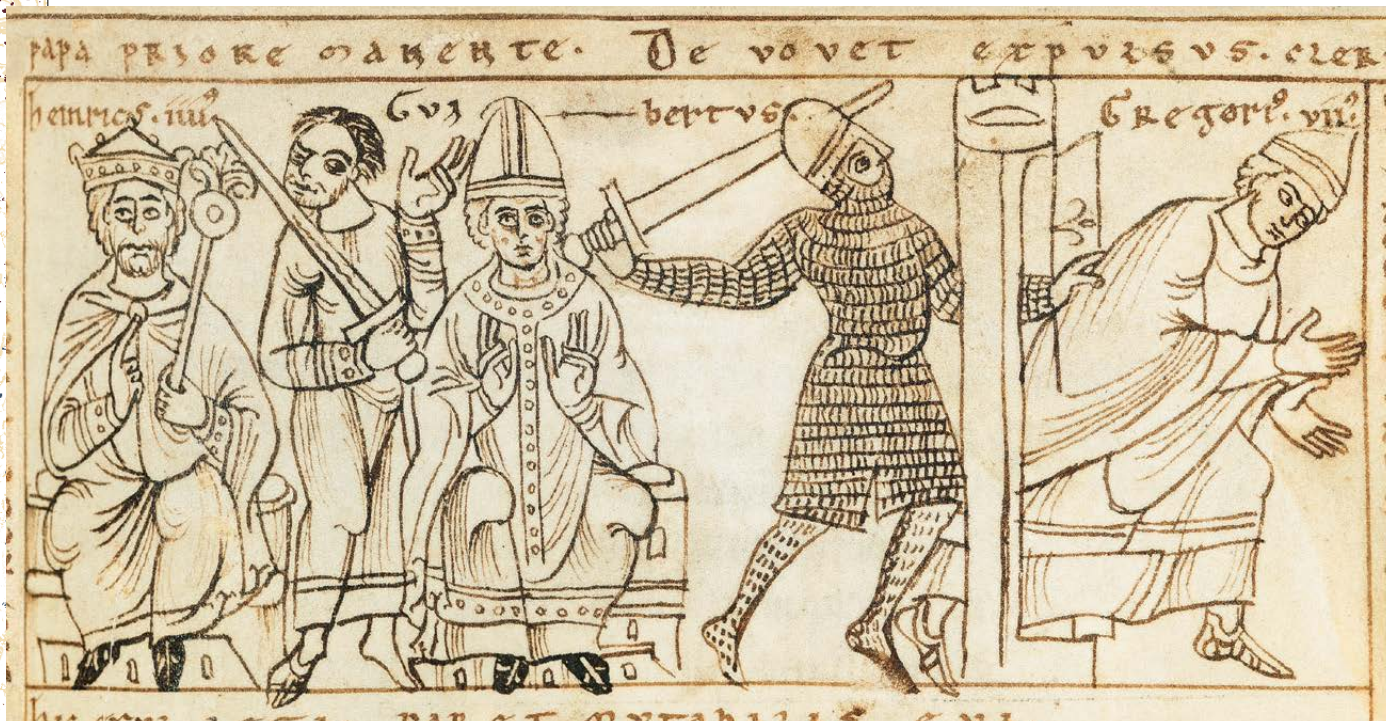 papa priore manente. De vovet expulsus. cler
heinricꝰ. iiiiꝰ Gui bertus. Gregoriꝰ. viiꝰ